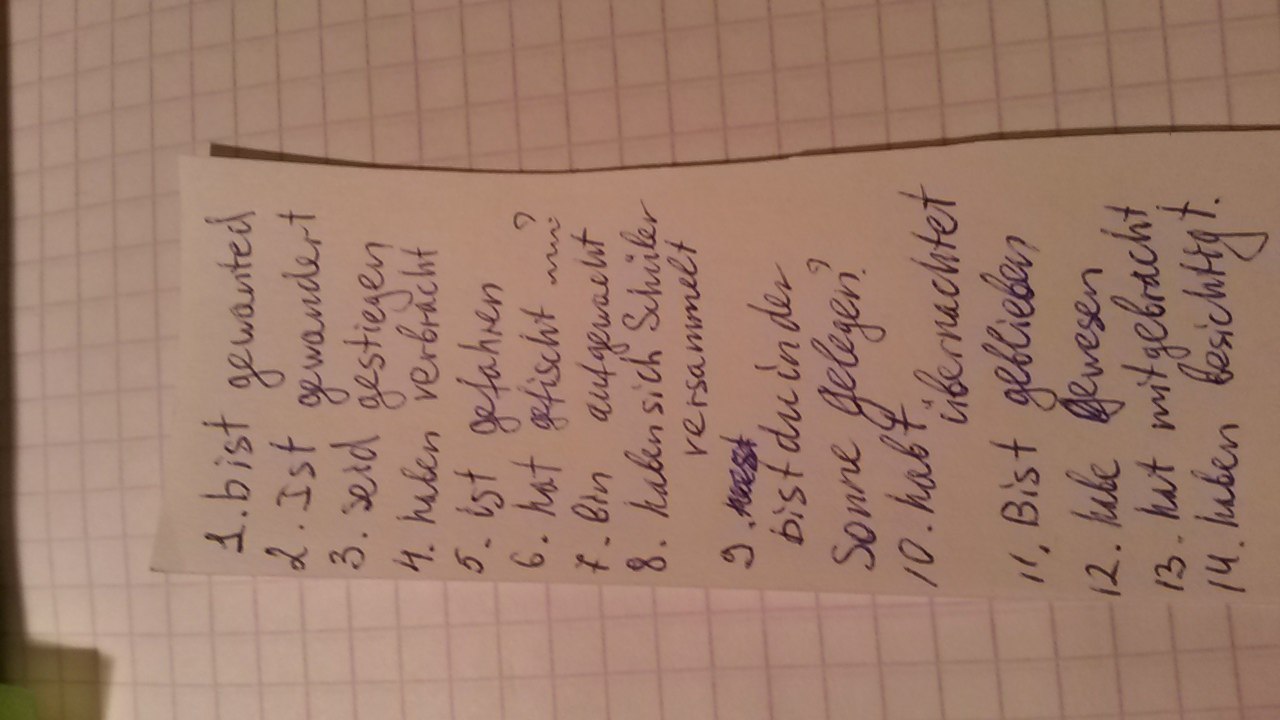 1. bist gewanted
2. Ist gewandert
3. seid gestiegen
4. haben verbracht
5. ist gefahren
6. hat gefischt ?
7. bin aufgewacht
8. haben sich Schüler
versammelt
9.
bist du in der
Sonne gelegen?
10. habt
übernachtet
11. Bist geblieben
12. habe gewesen
13. hat mitgebracht
14. haben besichtigt.